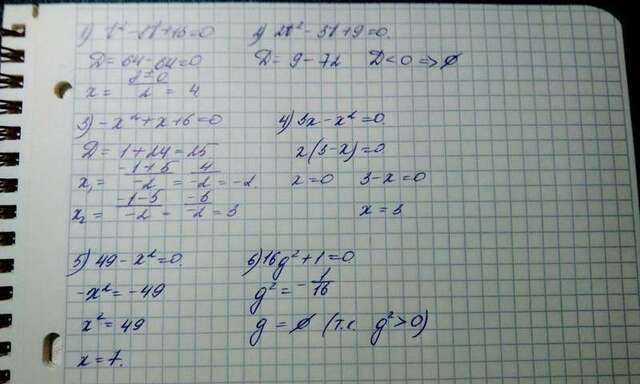 1) x² - 8x + 16 = 0
D = 64 - 64 = 0
x = (8 ± 0)/2 = 4
2) 2x² - 3x + 9 = 0.
D = 9 - 72 D < 0 => ∅
3) -x² + x + 6 = 0
D = 1 + 24 = 25
x₁ = (-1+5)/-2 = 4/-2 = -2.
x₂ = (-1-5)/-2 = -6/-2 = 3
4) 3x - x² = 0.
x(3-x) = 0
x = 0 3 - x = 0
x = 3
5) 49 - x² = 0.
-x² = -49
x² = 49
x = 7.
6) 16g² + 1 = 0
g² = -1/16
g = ∅ (т.к. g² > 0)